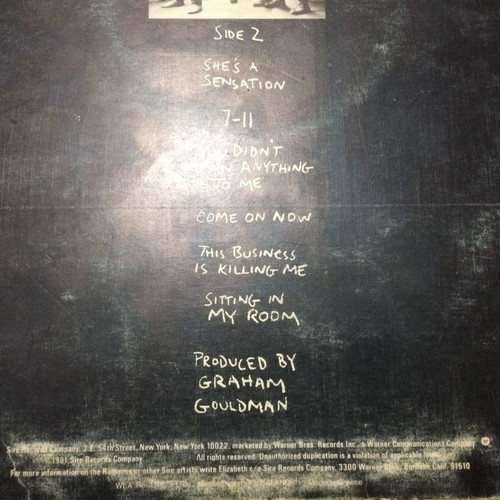 SIDE 2
SHE'S A
SENSATION
7-11
DIDN'T
ANYTHING
TO ME
COME ON NOW
THIS BUSINESS
IS KILLING ME
SITTING IN
MY ROOM
PRODUCED BY
GRAHAM
GOULDMAN
Sire Records Company, 3 E. 54th Street, New York, New York 10022, marketed by Warner Bros. Records Inc., a Warner Communications Company
1981 Sire Records Company. All rights reserved. Unauthorized duplication is a violation of applicable laws.
For more information on the Ramones or other Sire artists write Elizabeth c/o Sire Records Company, 3300 Warner Blvd., Burbank Calif. 91510